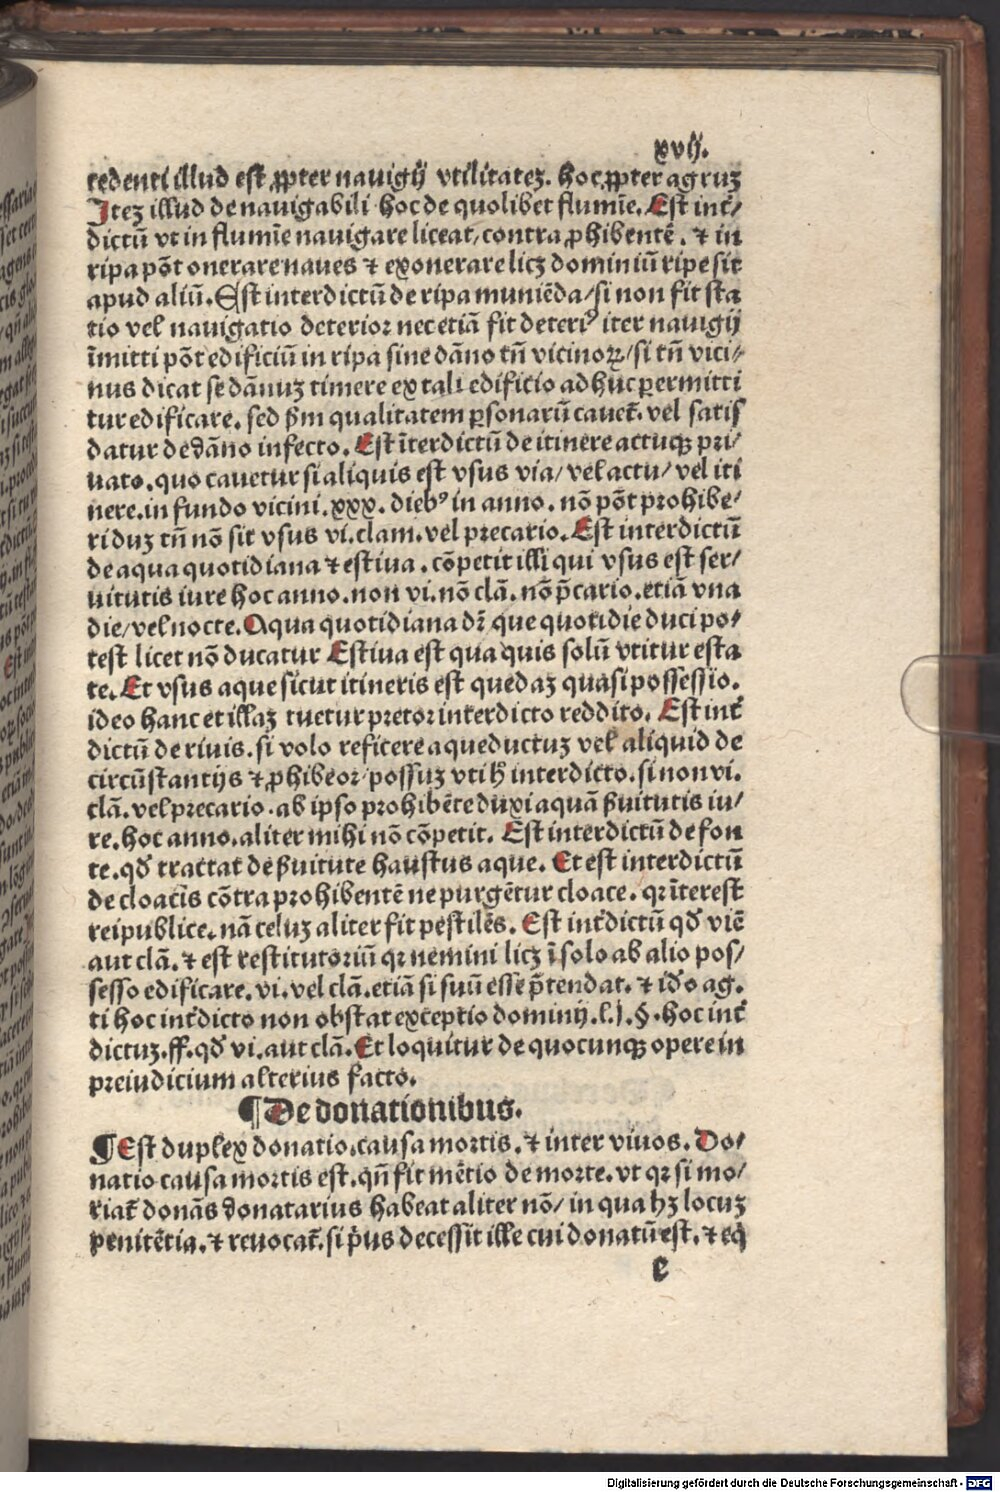 xvij.
cedenti illud est ꝓpter nauigij vtilitateʒ. hoc ꝓpter agruʒ
Iteʒ illud de nauigabili hoc de quolibet flumīe. Est int̄/
dictū vt in flumīe nauigare liceat/ contra ꝓhibentē. ⁊ in
ripa pōt onerare naues ⁊ exonerare licʒ dominiū ripe sit
apud aliū. Est interdictū de ripa muniēda/ si non fit sta
tio vel nauigatio deterior nec etiā fit deteriꝰ iter nauigij
īmitti pōt edificiū in ripa sine dāno tn̄ vicinoꝝ/ si tn̄ vici/
nus dicat se dānuʒ timere ex tali edificio adhuc ꝑmitti
tur edificare. sed ẜm qualitatem ꝑsonarū cauet̄. vel satiſ
datur de dāno infecto. Est īterdictū de itinere actuqꝫ pri/
uato. quo cauetur si aliquis est vsus via/ vel actu/ vel iti
nere. in fundo vicini. xxx. diebꝰ in anno. nō pōt prohibe/
ri duʒ tn̄ nō sit vsus vi. clam. vel precario. Est interdictū
de aqua quotidiana ⁊ estiua. cōpetit illi qui vsus est ser/
uitutis iure hoc anno. non vi. nō clā. nō p̄cario. etiā vna
die/ vel nocte. Aqua quotidiana dr̄ que quotidie duci po/
test licet nō ducatur Estiua est qua quis solū vtitur esta
te. Et vsus aque sicut itineris est quedaʒ quasi possessio.
ideo hanc et illaʒ tuetur pretor interdicto reddito. Est int̄
dictū de riuis. si volo reficere aqueductuʒ vel aliquid de
circūstantijs ⁊ ꝓhibeor/ possuʒ vti h̄ interdicto. si non vi.
clā. vel precario. ab ipso prohibēte duxi aquā ẜuitutis iu/
re. hoc anno. aliter mihi nō cōpetit. Est interdictū de fon
te. qd̄ tractat de ẜuitute haustus aque. Et est interdictū
de cloacīs cōtra prohibentē ne purgētur cloace. qr īterest
reipublice. nā celuʒ aliter fit pestilēs. Est int̄dictū qd̄ viē
aut clā. ⁊ est restitutoriū qr nemini licʒ ī solo ab alio pos/
sesso edificare. vi. vel clā. etiā si suū esse p̄tendat. ⁊ id̄o ag.
ti hoc int̄dicto non obstat exceptio dominij. l.j. §. hoc int̄
dictuʒ. ff. qd̄ vi. aut clā. Et loquitur de quocunqꝫ opere in
preiudicium alterius facto.
¶ De donationibus.
¶ Est duplex donatio. causa mortis. ⁊ inter viuos. Do/
natio causa mortis est. qn̄ fit mētio de morte. vt qr si mo/
riat̄ donās donatarius habeat aliter nō/ in qua hʒ locuʒ
penitētia. ⁊ reuocat̄. si p̄us decessit ille cui donatū est. ⁊ eq̄
e
Digitalisierung gefördert durch die Deutsche Forschungsgemeinschaft - DFG